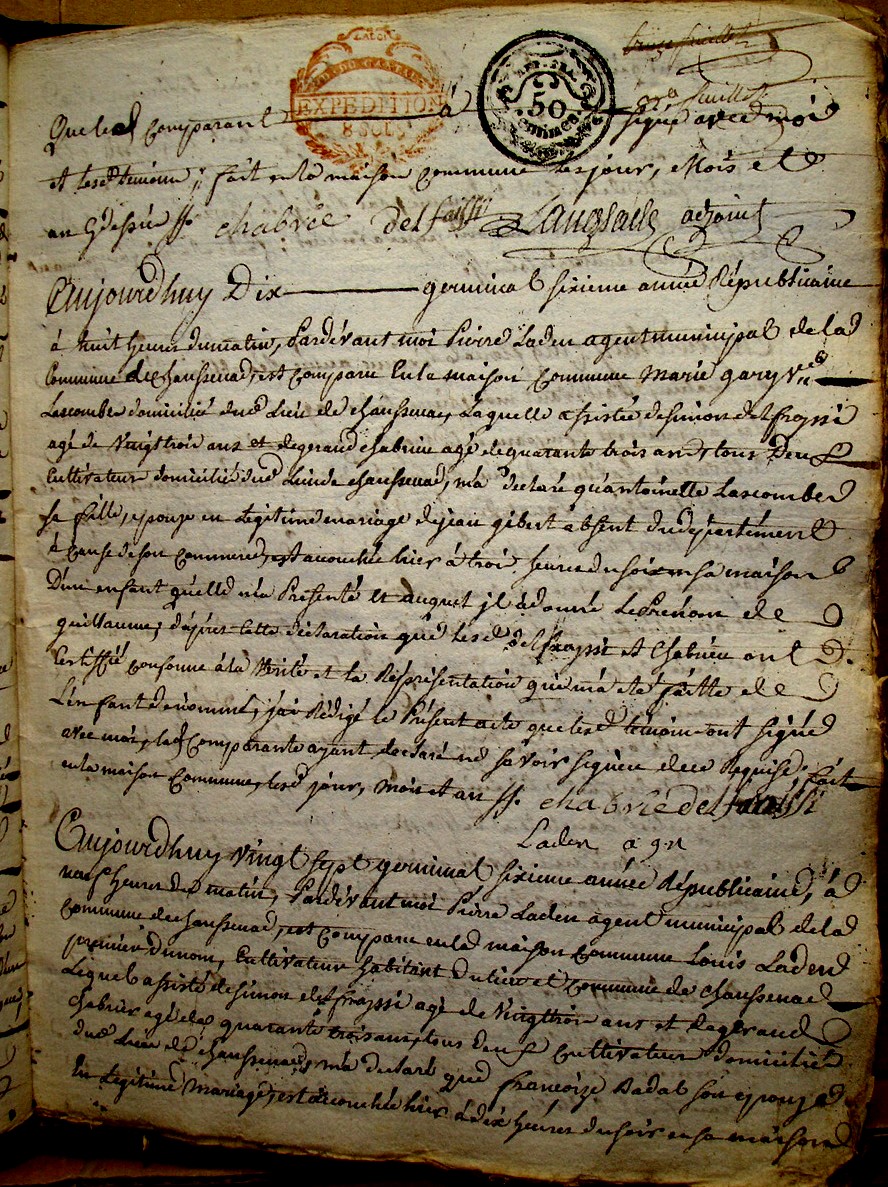 onze feuillet
feuillet
EXPEDITION
8 SOLS
REP. FRA.
50
centimes
Que le comparant à signé avec moi
et lesd. temoins; fait en la maison commune les jour, mois et
an qe dessus ff. chabrie delfraissi Laugsade adjoint
Aujourdhuy Dix germinal sixieme année Républicaine
à huit heures du matin, Pardevant moi Pierre Laden agent municipal de la
Commune de chaussenac, est comparu en la maison commune marie gary Ve
Lascombes domicilié dud. Lieu de chaussenac, Laquelle assistée de simon delfrayssi
agé de vingt trois ans et de gerand chabrier agé de quarante trois ans, tous Deux
Cultivateurs domiciliés dud. Lieu de chaussenac, m'a declaré qu'antoinette Lascombes
sa fille, epouse en Legitime mariage de jean gibert absent du departement
à cause de son commerce, est accouchée hier à trois heures du soir en sa maison
D'un enfant quelle m'a Présenté et auquel jl à donné Le Prenom de
guillaume; d'apres cette declaration que lesd. delfrayssi et Chabrier ont
Certiffié conforme à la Verité et la Représentation qui m'a eté faitte de
L'enfant denommé, j'ai Rédigé le Présent acte que lesd. temoins ont signés
avec moi, lad. Comparante ayant declaré ne savoir signer de ce Requise; fait
en la maison Commune, lesd. jour, mois et an ff. chabrie delfraissi
Laden agn
Aujourdhuy vingt sept germinal sixieme année Républicaine, à
neuf heures du matin, Pardevant moi Pierre Laden agent municipal de la
Commune de chaussenac, est comparu en la maison commune Louis Laden
premier du nom, Cultivateur habitant du lieu et commune de chaussenac
Lequel assisté de simon delfrayssi agé de Vingt trois ans et de gerand
Chabrier agé de quarante trois ans, tous deux Cultivateurs domiciliés
dud. Lieu de chaussenac, m'a declaré que françoize Badal son epouse
En Legitime Mariage, est accouchée hier à dix heures du soir en sa maison